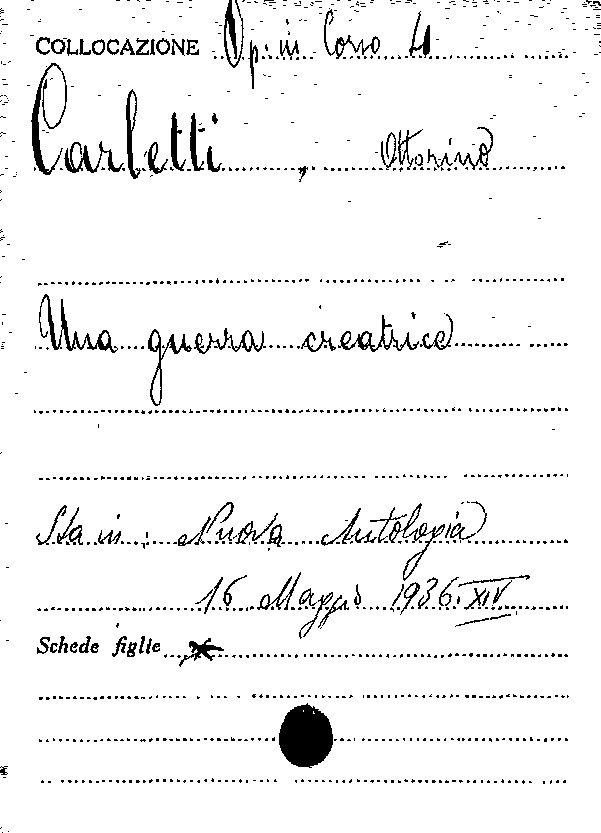 COLLOCAZIONE Op. in Corso 40
Carletti, Ottorino
Una guerra creatrice
Sta in: Nuova Antologia
16 Maggio 1936. XIV
Schede figlie